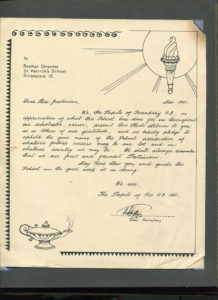 To
Brother Director
St Patrick's School
Singapore 15.
Nov. 1961.
Dear Rev. Gentleman,
We, the Pupils of Secondary 4B, in
appreciation of what the School has done for us throughout
our scholastic career, present this Photo Album to you
as a token of our gratitude, and we hereby pledge to
uphold the good name of the School irrespective of
whatever future careers may be our lot and in
whatever country we may be. We shall always remember
that we are first and foremost Patricians.
May God bless you and guide the
School in the good work it is doing.
We are,
The Pupils of Sec 4B 1961.
Class Secretary